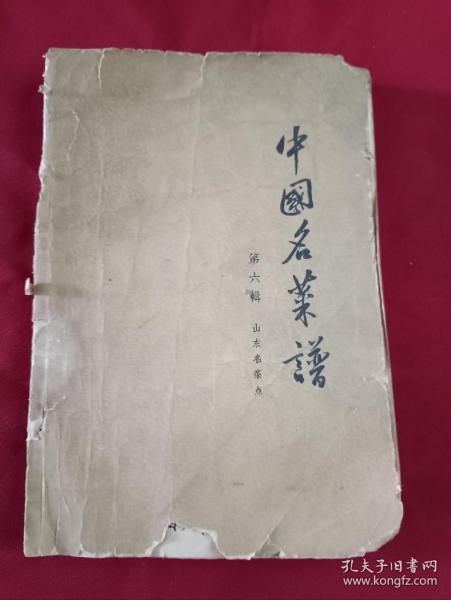 中國名菜譜
第六輯 山东名菜点
孔夫子旧书网
www.kongfz.com